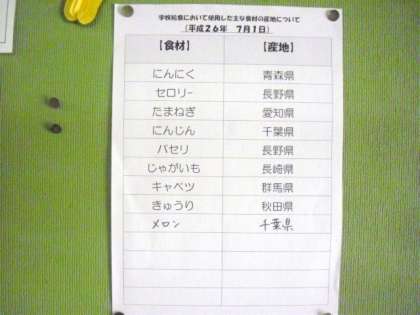 学校給食において使用した主な食材の産地について
（平成２６年　７月１日）
【食材】　【産地】
にんにく　青森県
セロリー　長野県
たまねぎ　愛知県
にんじん　千葉県
パセリ　長野県
じゃがいも　長崎県
キャベツ　群馬県
きゅうり　秋田県
メロン　千葉県